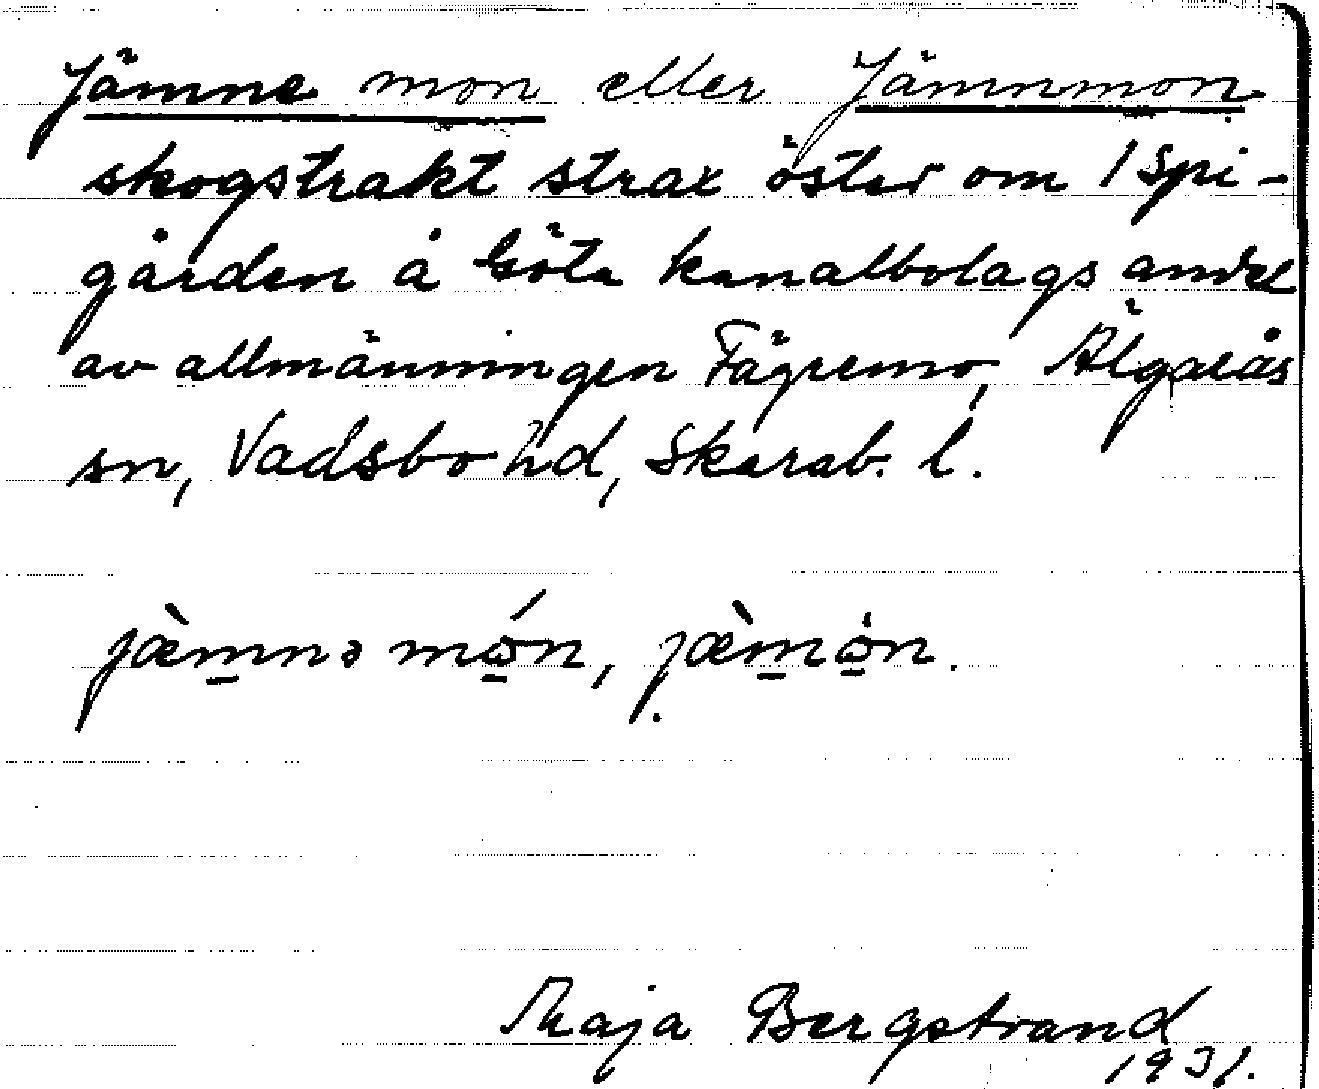 Jämne mon eller Jämnmon
skogstrakt strax öster om Ispi-
gården å Göta kanalbolags andel
av allmänningen Fägremo, Älgarås
sn, Vadsbo hd, Skarab. l.
jæ̀mnə món, jæ̀mòn.
Maja Bergstrand
1931.